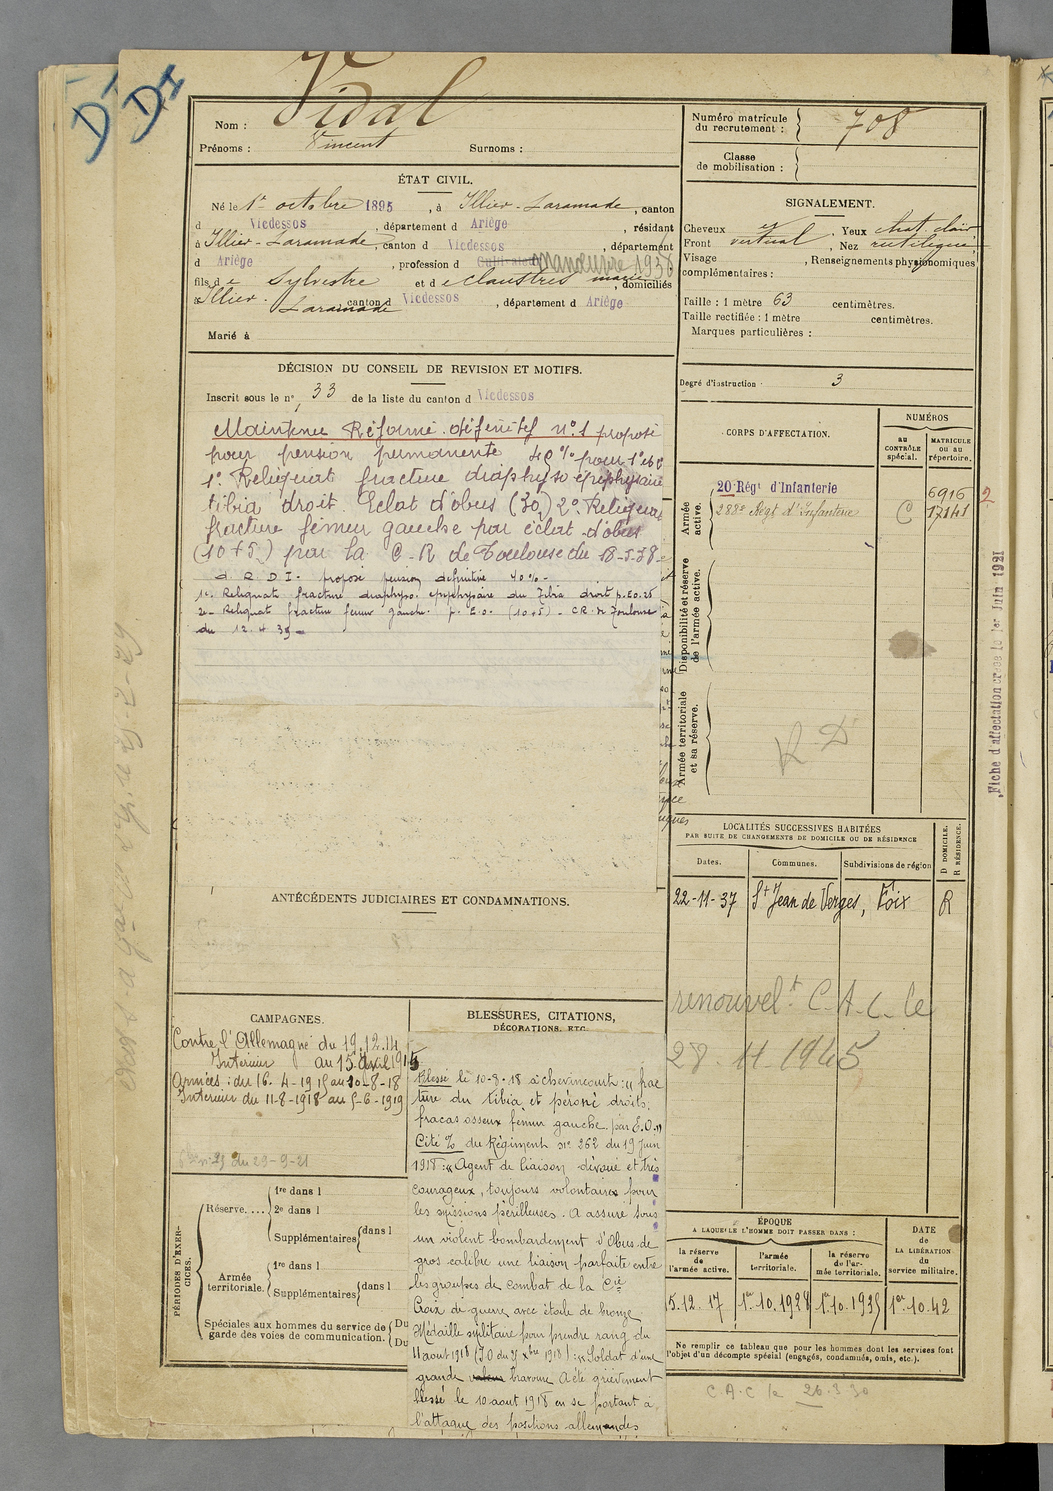 DI
DI
Nom : Vidal
Prénoms : Vincent Surnoms :
Numéro matricule du recrutement : 708
Classe de mobilisation :
ÉTAT CIVIL.
Né le 1er octobre 1895, à Illier-Laramade, canton
d Vicdessos, département d Ariège, résidant
à Illier-Laramade, canton d Vicdessos, département
d Ariège, profession d Cultivateur manœuvre 1936
fils de Sylvestre et de Claustres marie, domiciliés
à Illier-Laramade, canton d Vicdessos, département d Ariège
Marié à
SIGNALEMENT.
Cheveux et Yeux chat. clair
Front vertical, Nez rectiligne
Visage , Renseignements physionomiques
complémentaires :
Taille : 1 mètre 63 centimètres.
Taille rectifiée : 1 mètre centimètres.
Marques particulières :
Degré d'instruction : 3
DÉCISION DU CONSEIL DE REVISION ET MOTIFS.
Inscrit sous le n° 33 de la liste du canton d Vicdessos
Maintenu Réforme définitif n°1 proposé
pour pension permanente 40% pour 1° et 2°
1° Reliquat fracture diaphyso épiphysaire
tibia droit. Eclat d'obus (30) 2° Reliquat
fracture fémur gauche par éclat d'obus
(10+5) par la C.R de Toulouse du 18-5-38-
d R.D.I. proposé pension définitive 40%-
1°- Reliquat fracture diaphyso. épiphysaire du Tibia droit p.E.o. 25
2°- Reliquat fracture fémur gauche. p. E.o. (10+5) - CR. de Toulouse
du 12.4.39-
CORPS D'AFFECTATION.
NUMÉROS
au CONTRÔLE spécial.
MATRICULE ou au répertoire.
Armée active.
20 Régt d'Infanterie 6916
288e Regt d'Infanterie C 17141
2
Disponibilité et réserve de l'armée active.
Armée territoriale et sa réserve.
R D
Fiche d'affectation créée le 1er Juin 1921
LOCALITÉS SUCCESSIVES HABITÉES
PAR SUITE DE CHANGEMENTS DE DOMICILE OU DE RÉSIDENCE
Dates. Communes. Subdivisions de région
D DOMICILE. R RÉSIDENCE.
22-11-37 St Jean de Verges, Foix R
renouvelt C.A.C. le
28.11.1945
ANTÉCÉDENTS JUDICIAIRES ET CONDAMNATIONS.
CAMPAGNES.
Contre l'Allemagne du 19.12.14
Intérieur au 15 Avril 1915
Armées : du 16-4-1915 au 10-8-18
Intérieur du 11-8-1918 au 5-6-1919
du 29-9-21
BLESSURES, CITATIONS,
DÉCORATIONS, ETC.
Blessé le 10-8-18 à chevincourt : « frac
ture du tibia et péroné droits,
fracas osseux fémur gauche par E.O. »
Cité % du Régiment n° 262 du 19 Juin
1918 : « Agent de liaison dévoué et très
courageux, toujours volontaires pour
les missions périlleuses. A assuré sous
un violent bombardement d'Obus de
gros calibre une liaison parfaite entre
les groupes de combat de la Cie
Croix de guerre avec étoile de bronze
Médaille militaire pour prendre rang du
11 aout 1918 (JO du 25 Xbre 1918) : « Soldat d'une
grande valeur bravoure. A été grièvement
blessé le 10 aout 1918 en se portant à
l'attaque des positions allemandes
PÉRIODES D'EXERCICES.
Réserve.... 1re dans l
2e dans l
Supplémentaires dans l
Armée territoriale. 1re dans l
Supplémentaires dans l
Spéciales aux hommes du service de garde des voies de communication. Du
Du
ÉPOQUE
A LAQUELLE L'HOMME DOIT PASSER DANS :
la réserve de l'armée active.
l'armée territoriale.
la réserve de l'armée territoriale.
DATE de LA LIBÉRATION du service militaire.
5.12.17 1er.10.1928 1er.10.1935 1er.10.42
Ne remplir ce tableau que pour les hommes dont les services font
l'objet d'un décompte spécial (engagés, condamnés, omis, etc.).
C.A.C le 26.3.30